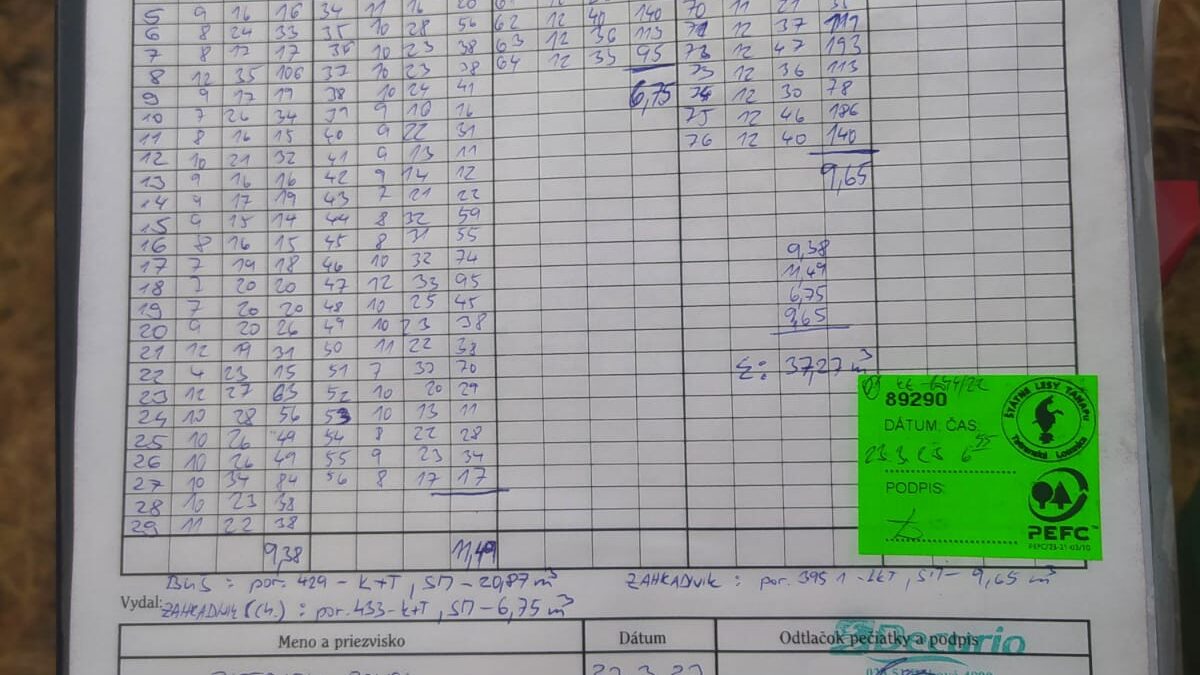 5 9 16 16 34 11 16 20
6 8 24 33 35 10 28 56 62 12 40 140 70 11 21
7 8 17 17 36 10 23 38 63 12 36 113 71 12 37 119
8 12 35 106 37 10 23 38 64 12 33 95 72 12 47 193
9 9 17 19 38 10 24 41 73 12 36 113
10 7 26 34 39 9 16 16 6,75 74 12 30 78
11 8 16 15 40 9 22 31 75 12 46 186
12 10 21 32 41 9 13 11 76 12 40 140
13 9 16 16 42 9 14 12 9,65
14 9 17 19 43 7 21 22
15 9 15 14 44 8 32 59
16 8 16 15 45 8 31 55 9,38
17 7 19 18 46 10 32 74 11,49
18 7 20 20 47 12 33 95 6,75
19 7 20 20 48 10 25 45 9,65
20 9 20 26 49 10 23 38
21 12 19 31 50 11 22 38
22 4 23 15 51 7 37 70 Σ: 37,27 m³
23 12 27 63 52 10 20 29
24 10 28 56 53 10 13 11
25 10 26 49 54 8 22 28
26 10 26 49 55 9 23 34
27 10 34 84 56 8 17 17
28 10 23 38
29 11 22 38
9,38 11,49
89290
DÁTUM, ČAS
23.3.23 6 55
PODPIS:
ŠTÁTNE LESY TANAPu
Tatranská Lomnica
PEFC™
PEFC/23-21-03/10
por. 429 - K+T, SM - 20,87 m³ por. 395 1 - LKT, SM - 9,65 m³
Vydal: por. 433 - K+T, SM - 6,75 m³
Meno a priezvisko Dátum Odtlačok pečiatky a podpis
Decorio